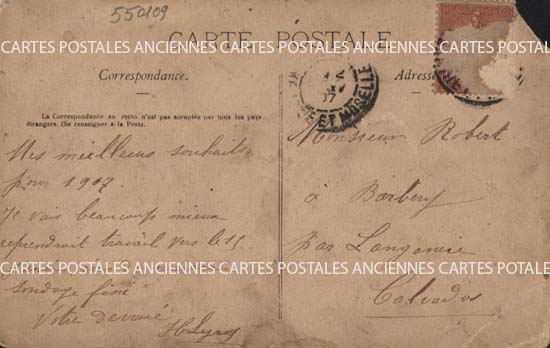 550109
CARTES POSTALES ANCIENNES CARTES POSTALES ANCIENNES CARTES POSTALES
CARTE POSTALE
Correspondance.
Adresse
ET MOSELLE
La Correspondance au recto n'est pas acceptée par tous les pays
étrangers. (Se renseigner à la Poste.
Mes meilleurs souhaits
pour 1907
Je vais beaucoup mieux
reprendrait travail vers le 15
sondage fini
Votre dévoué
Monsieur Robert
à Barbery
par Langannerie
Calvados
CARTES POSTALES ANCIENNES CARTES POSTALES ANCIENNES CARTES POTALE